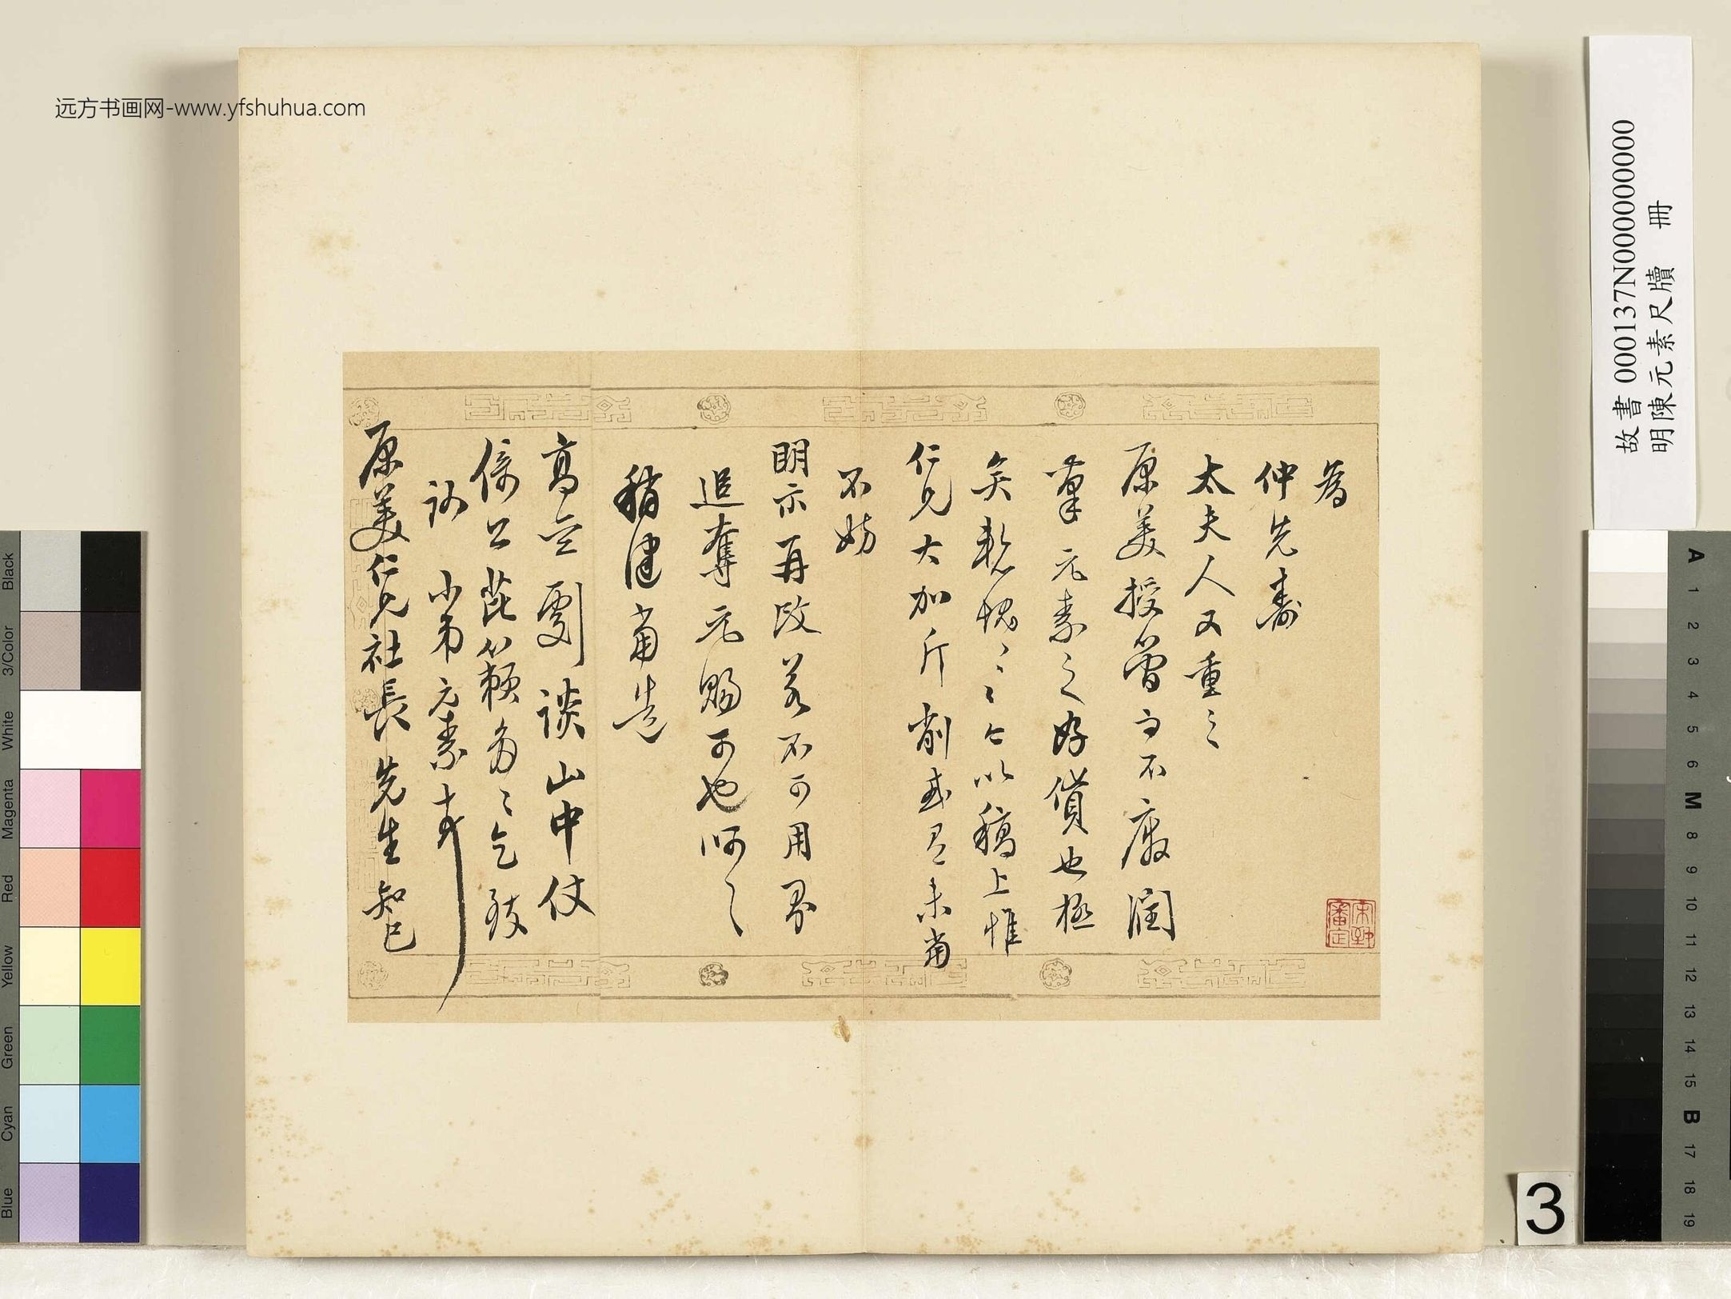 为
仲先壽
太夫人又重之
原美授簡而不廢潤
筆元素之好貨也極
矣慙愧〻〻以稿上惟
仁兄大加斤削或有未當
不妨
明示再改若不可用界
追奪元賜可也呵〻
稍健當造
高齋劇談山中仗
庇多〻乞致
小弟元素
原美仁兄社長先生知己
远方书画网-www.yfshuhua.com
故書 000137N000000000
明陳元素尺牘 冊
3
Black
3/Color
White
Magenta
Red
Yellow
Green
Cyan
Blue
A
1
2
3
4
5
6
M
8
9
10
11
12
13
14
15
B
17
18
19